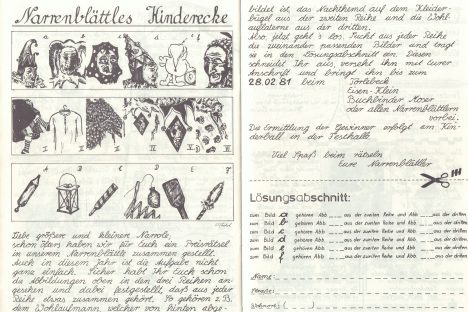 Narrenblättles Kinderecke
a b c d e f
I II III IV V VI
1 2 3 4 5 6
Liebe größere und kleinere Narrole,
schon öfters haben wir für Euch ein Preisrätsel
in unserem Narrenblättle zusammen gestellt.
Auch in diesem Jahr ist die Aufgabe nicht
ganz einfach. Sicher habt Ihr Euch schon
die Abbildungen oben in den drei Reihen an-
gesehen und dabei festgestellt, daß aus jeder
Reihe etwas zusammen gehört. So gehören z.B.
dem Wohlaufmann welcher von hinten abge-
bildet ist, das Nachthemd auf dem Kleider-
bügel aus der zweiten Reihe und die Wohl-
auflaterne aus der dritten.
Also jetzt geht's los. Sucht aus jeder Reihe
die zueinander passenden Bilder und tragt
sie in den Lösungsabschnitt ein. Diesen
schneidet Ihr aus, verseht ihn mit eurer
Anschrift und bringt ihn bis zum
28.02.81 beim Törlebeck
Eisen-Klein
Buchbinder Moser
oder allen Narrenblättlern
vorbei.
Die Ermittlung der Gewinner erfolgt am Kin-
derball in der Festhalle.
Viel Spaß beim rätseln
eure Narrenblättler
Lösungsabschnitt:
zum Bild a gehören Abb. aus der zweiten Reihe und Abb. aus der dritten Reihe
zum Bild b gehören Abb. aus der zweiten Reihe und Abb. aus der dritten Reihe
zum Bild c gehören Abb. aus der zweiten Reihe und Abb. aus der dritten Reihe
zum Bild d gehören Abb. aus der zweiten Reihe und Abb. aus der dritten Reihe
zum Bild e gehören Abb. aus der zweiten Reihe und Abb. aus der dritten Reihe
zum Bild f gehören Abb. aus der zweiten Reihe und Abb. aus der dritten Reihe
Name:
Straße:
Wohnort: ( )